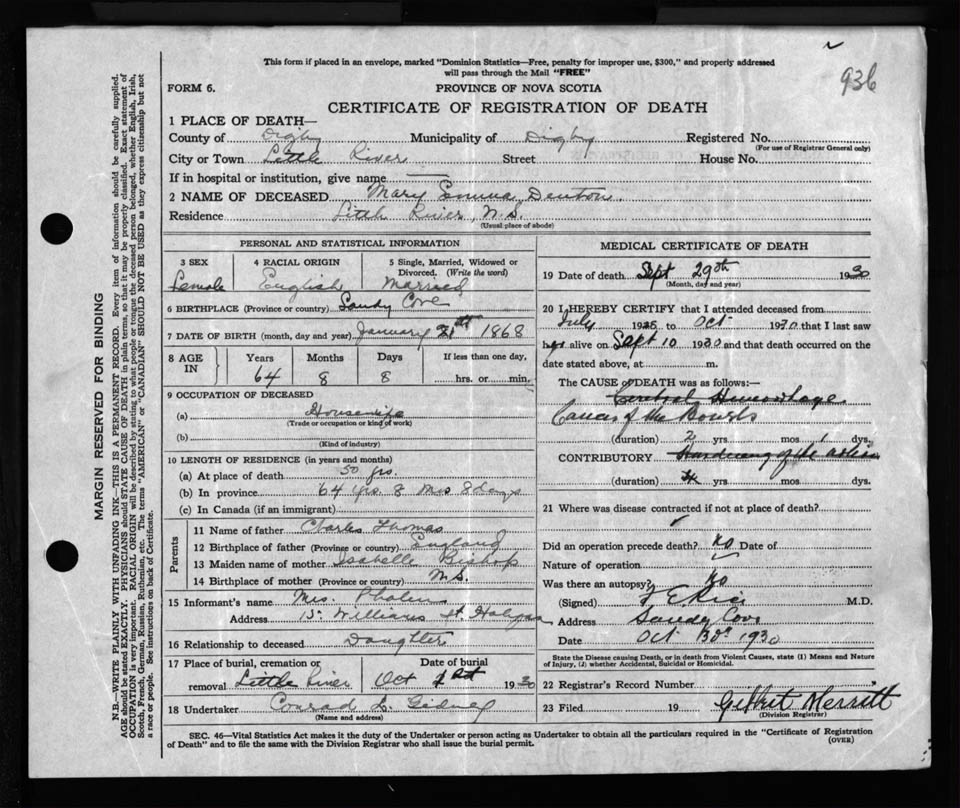 This form if placed in an envelope, marked "Dominion Statistics—Free, penalty for improper use, $300," and properly addressed
will pass through the Mail "FREE"
936
FORM 6.
PROVINCE OF NOVA SCOTIA
CERTIFICATE OF REGISTRATION OF DEATH
1 PLACE OF DEATH—
County of Digby Municipality of Digby Registered No.
(For use of Registrar General only)
City or Town Little River Street House No.
If in hospital or institution, give name
2 NAME OF DECEASED Mary Emma Denton.
Residence Little River, N.S.
(Usual place of abode)
PERSONAL AND STATISTICAL INFORMATION
3 SEX 4 RACIAL ORIGIN 5 Single, Married, Widowed or
Divorced. (Write the word)
Female English Married
6 BIRTHPLACE (Province or country) Sandy Cove
7 DATE OF BIRTH (month, day and year) January 21st 1868
8 AGE IN Years Months Days If less than one day,
64 8 8 hrs. or min.
9 OCCUPATION OF DECEASED
(a) Housewife
(Trade or occupation or kind of work)
(b)
(Kind of industry)
10 LENGTH OF RESIDENCE (in years and months)
(a) At place of death 50 yrs.
(b) In province 64 yrs 8 Mos 8 days
(c) In Canada (if an immigrant)
Parents
11 Name of father Charles Thomas
12 Birthplace of father (Province or country) England
13 Maiden name of mother Isabelle Bishop
14 Birthplace of mother (Province or country) N.S.
15 Informant's name Mrs. Phalen
Address 15 Williams St. Halifax
16 Relationship to deceased Daughter
17 Place of burial, cremation or Date of burial
removal Little River Oct 1st 1930
18 Undertaker Conrad L. Gidney
(Name and address)
MEDICAL CERTIFICATE OF DEATH
19 Date of death Sept 29th 1930
(Month, day and year)
20 I HEREBY CERTIFY that I attended deceased from
July to Oct 1930 that I last saw
her alive on Sept 10 1930 and that death occurred on the
date stated above, at m.
The CAUSE of DEATH was as follows:—
Hemorrhage
Cancer of the Bowels
(duration) 2 yrs mos 1 dys.
CONTRIBUTORY Hardening of the
(duration) yrs. mos. dys.
21 Where was disease contracted if not at place of death?
Did an operation precede death? No Date of
Nature of operation
Was there an autopsy? No
(Signed) M.D.
Address Sandy Cove
Date Oct 1930
State the Disease causing Death, or in death from Violent Causes, state (1) Means and Nature
of Injury, (2) whether Accidental, Suicidal or Homicidal.
22 Registrar's Record Number
23 Filed 19 Gilbert Merritt
(Division Registrar)
SEC. 46—Vital Statistics Act makes it the duty of the Undertaker or person acting as Undertaker to obtain all the particulars required in the "Certificate of Registration
of Death" and to file the same with the Division Registrar who shall issue the burial permit. (OVER)
MARGIN RESERVED FOR BINDING
N.B.—WRITE PLAINLY WITH UNFADING INK—THIS IS A PERMANENT RECORD. Every item of information should be carefully supplied.
AGE should be stated EXACTLY. PHYSICIANS should STATE CAUSE OF DEATH in plain terms, so that it may be properly classified. Exact statement of
OCCUPATION is very important. RACIAL ORIGIN will be described by stating to what people or tongue the deceased person belonged, whether English, Irish,
Scotch, French, German, Russian, Ruthenian, etc. The terms "AMERICAN" or "CANADIAN" SHOULD NOT BE USED as they express citizenship but not
a race or people. See instructions on back of Certificate.